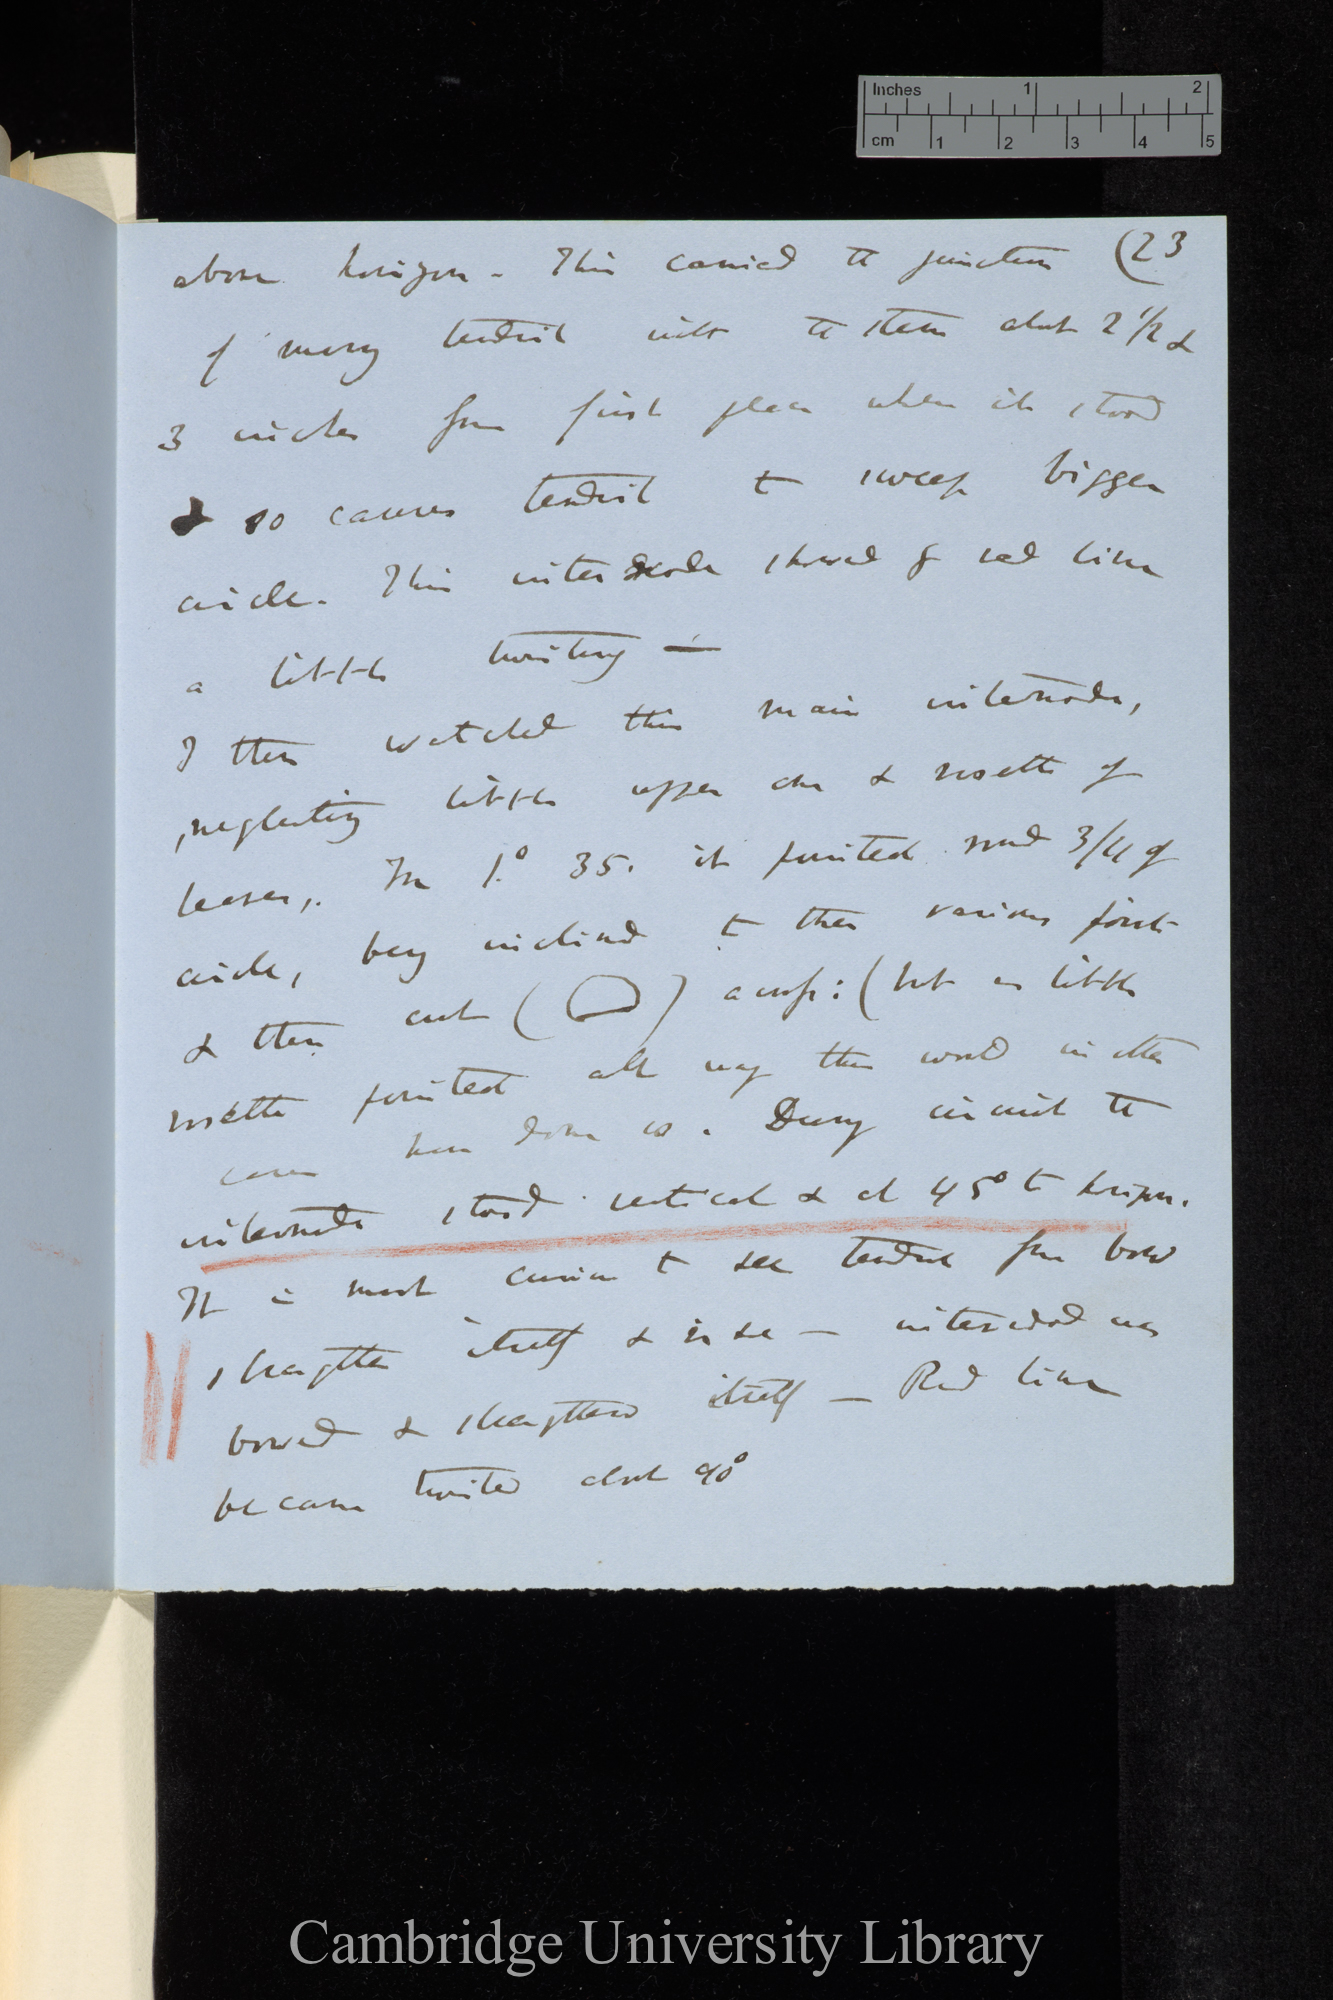 Inches 1 2
cm 1 2 3 4 5
(23
above horizon. This carried the junction
of moving tendril with the stem about 2 1/2 &
3 inches from first place when it stood
& so causes tendril to sweep bigger
circle. This internode showed by red line
a little twisting —
I then watched this main internode,
, neglecting little upper one & rosette of
leaves,. In 1° 35. it pointed round 3/4 of
circle, being inclined to these various points
& then cut ( ) across: (but as little
rosette pointed all way this would in other
cases have done so. During circuit the
internode stood vertical & at 45° to horizon.
It is most curious to see tendril from bow
straighten itself & rise — internode was
bowed & straightened itself — Red line
became twisted about 90°
Cambridge University Library